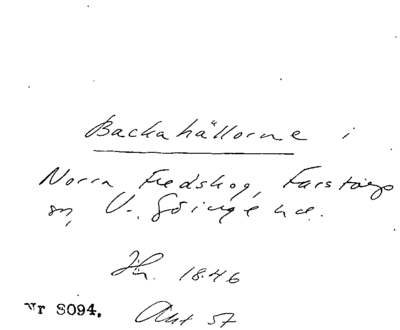 Backahällorne i
Norra Fredskog, Farstorp
sn, V. Göinge hd.
1846
Nr S094. Akt 57